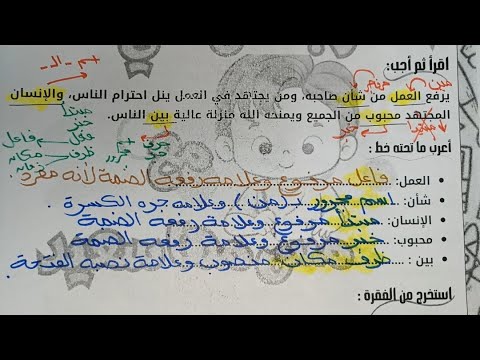 اقرأ ثم أجب:
يرفع العمل من شأن صاحبه، ومن يجتهد في العمل ينل احترام الناس، والإنسان
المجتهد محبوب من الجميع ويمنحه الله منزلة عالية بين الناس.
أعرب ما تحته خط :
العمل: فاعل مرفوع وعلامة رفعه الضمة لأنه مفرد
شأن: اسم مجرور بـ (من) وعلامة جره الكسرة.
الإنسان: مبتدأ مرفوع وعلامة رفعه الضمة
محبوب: خبر مرفوع وعلامة رفعه الضمة
بين: ظرف مكان منصوب وعلامة نصبه الفتحة.
استخرج من الفقرة :